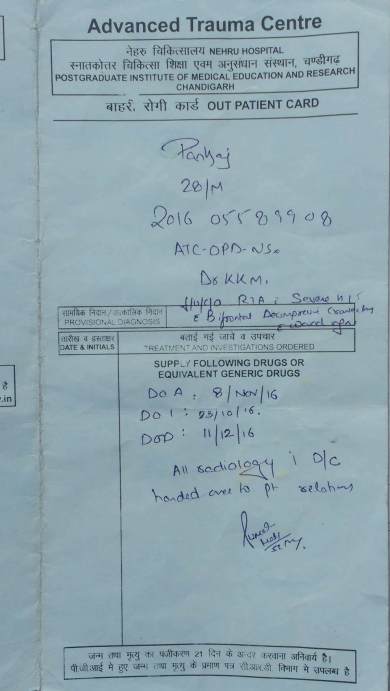 Advanced Trauma Centre
नेहरु चिकित्सालय NEHRU HOSPITAL
स्नातकोतर चिकित्सा शिक्षा एवम अनुसंधान संस्थान, चण्डीगढ़
POSTGRADUATE INSTITUTE OF MEDICAL EDUCATION AND RESEARCH
CHANDIGARH
बाहरी रोगी कार्ड OUT PATIENT CARD
Pankaj
28/M
2016 05589908
ATC-OPD-NS
Dr KKM
RTA Severe HI
सामयिक निदान/तात्कालिक निदान
PROVISIONAL DIAGNOSIS
Bifrontal Decompressive
तारीख व हस्ताक्षर
DATE & INITIALS
बताई गई जांचे व उपचार
TREATMENT AND INVESTIGATIONS ORDERED
SUPPLY FOLLOWING DRUGS OR
EQUIVALENT GENERIC DRUGS
DOA : 8/Nov/16
DOI : 23/10/16.
DOD : 11/12/16
All radiology i D/C
handed over to pt relatives
जन्म तथा मृत्यु का पंजीकरण 21 दिन के अन्दर करवाना अनिवार्य है।
पी.जी.आई मे हुए जन्म तथा मृत्यु के प्रमाण पत्र सी.आर.डी. विभाग मे उपलब्ध है
है
.in